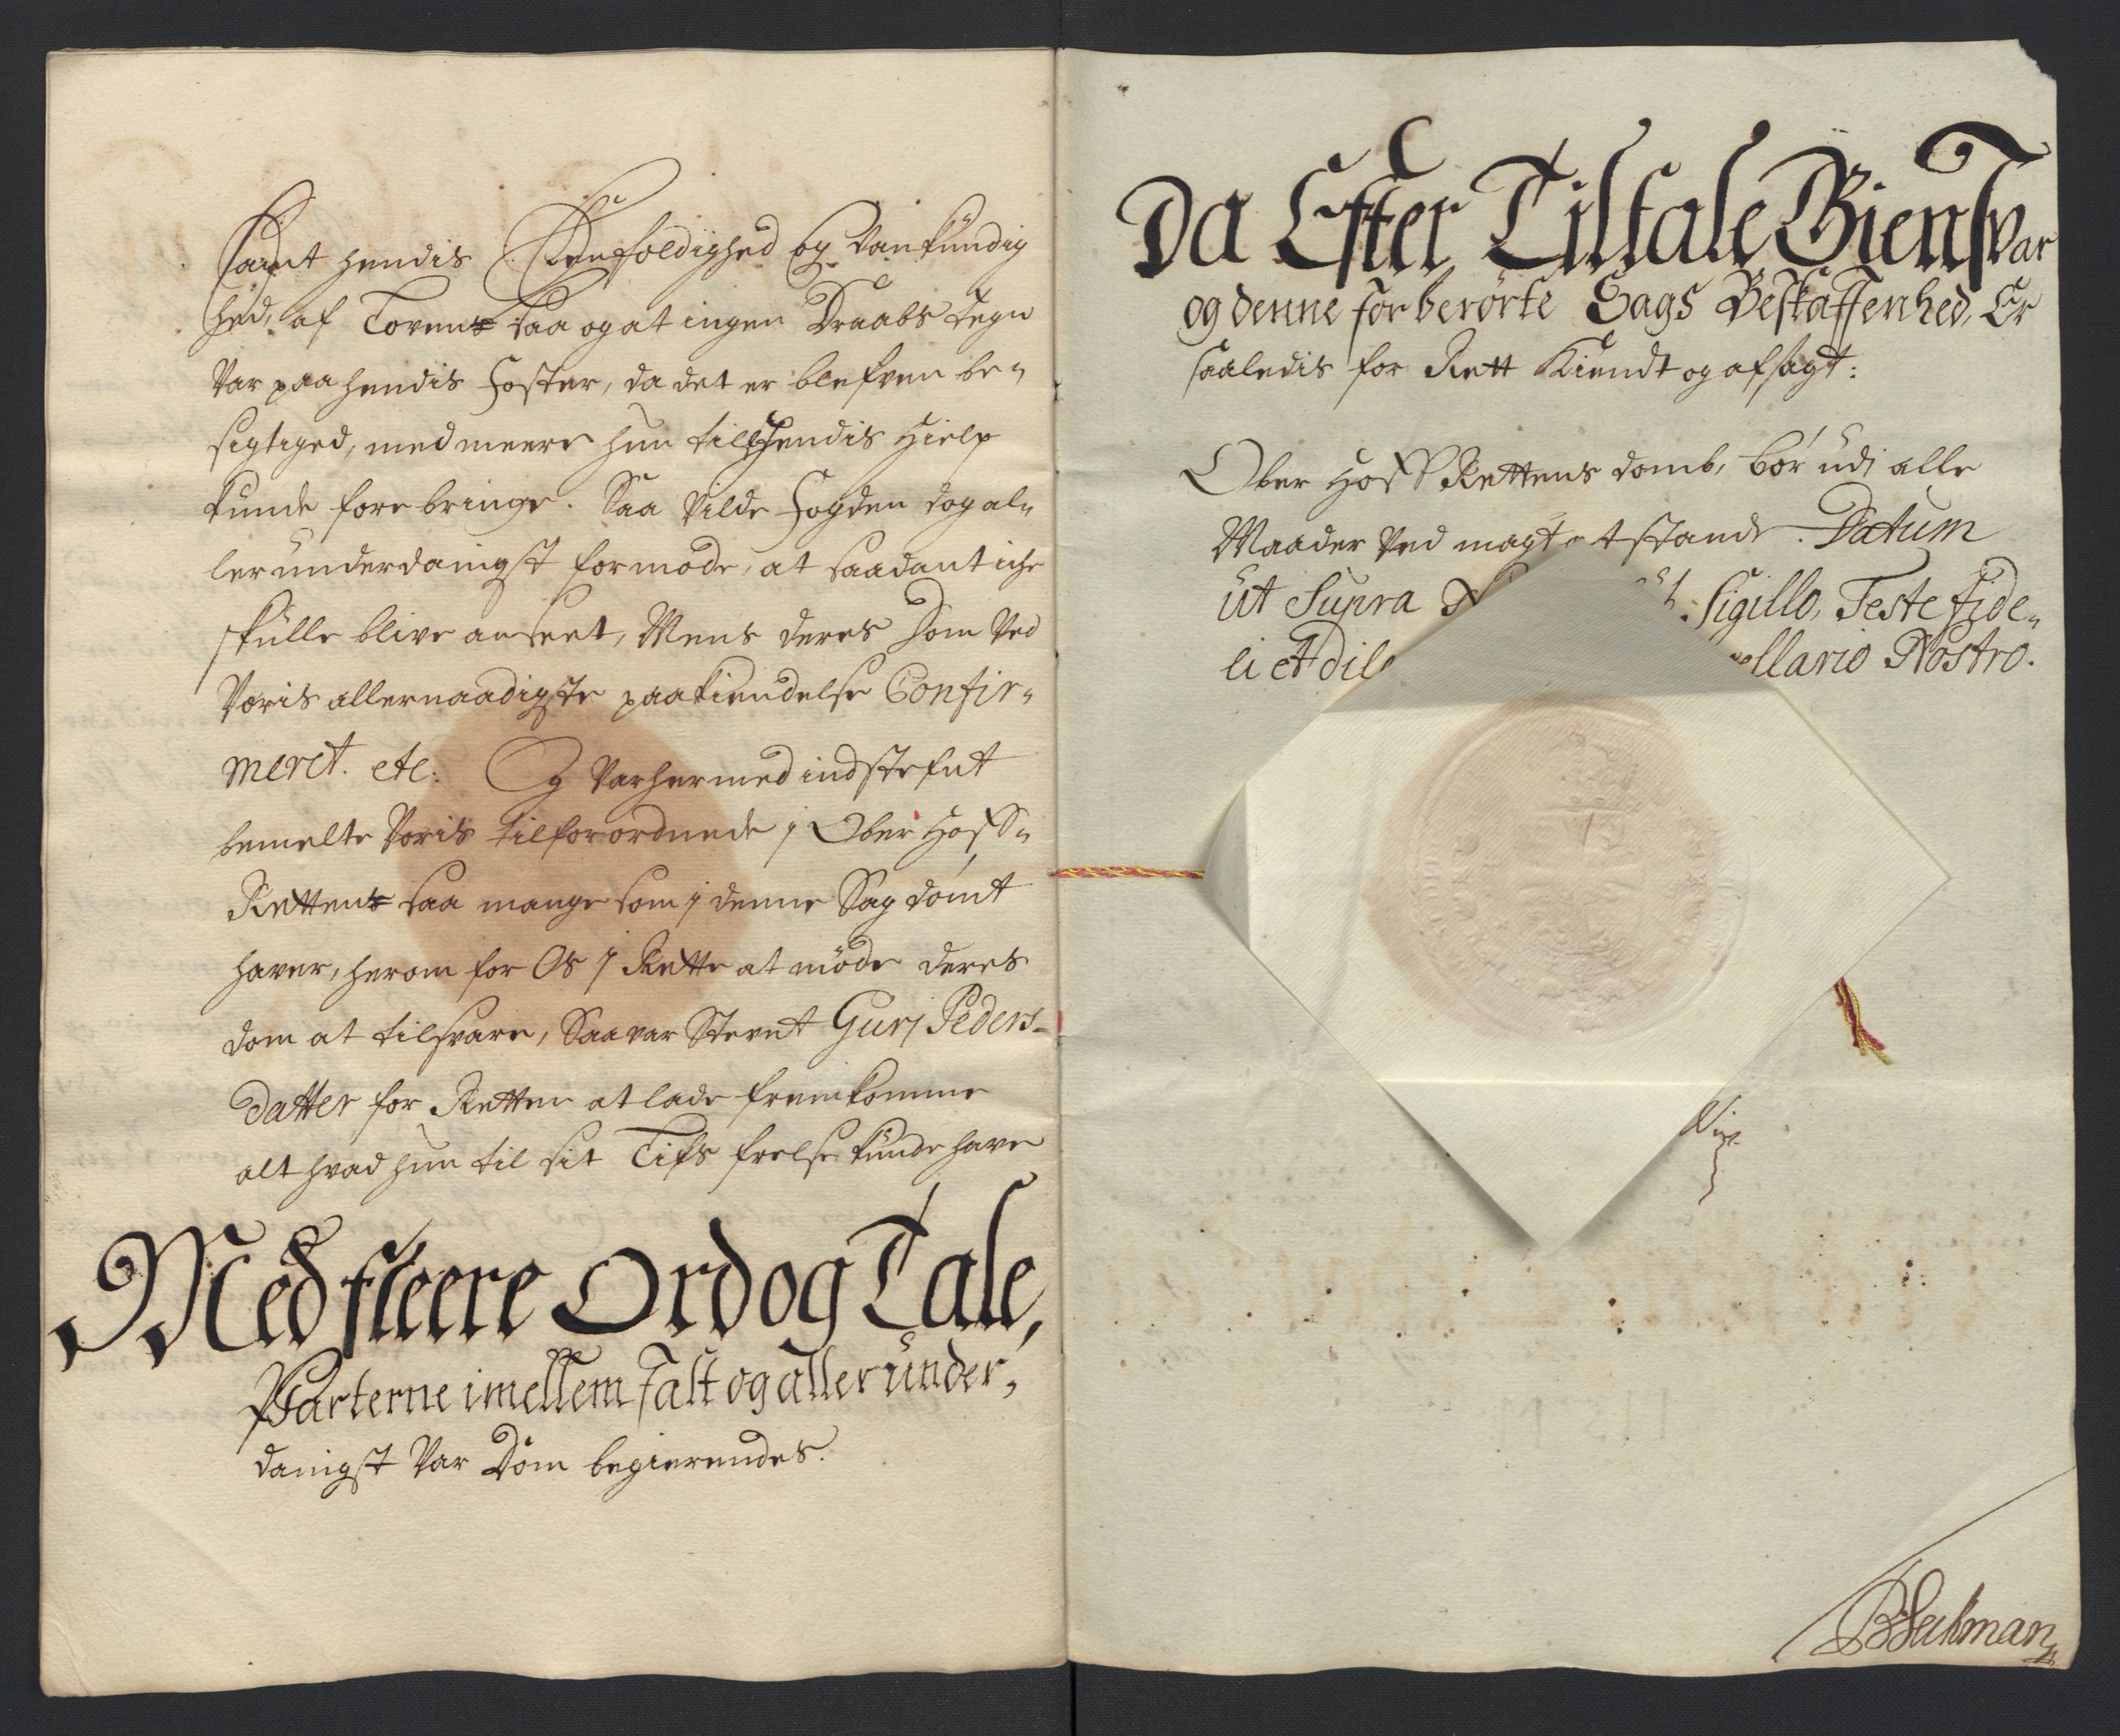 Samt hendis Eenfoldighed og Vankündig
hed, af Loven saa og at ingen Draabs Tegn
Var paa hendis Foster, da det er blefven be-
sigtiged, med meere hun till hendis Hielp
kunde forebringe. Saa Vilde Fogden dog al-
lerunderdanigst formode, at saadant iche
skulle blive anseet, Mens deres Dom Ved
Voris allernaadigste paakiendelse Confir-
meret. etc: Og Var hermed indstefnt
bemelte Voris tilforordnede j Ober Hoff-
Retten saa mange som j denne Sag dømt
haver, herom for Os j Rette at møde deres
dom at tilsvare, Saa var Stevnt Gurj Peders-
Datter for Retten at lade fremkomme
alt hvad hun til sit Lifs frelse kunde have
Med fleere Ord og Tale,
Parterne imellem falt og alleründer-
danigst Var Dom begierendes.
Da Efter Tiltale Giensvar
og denne forberørte Sags Beskaffenhed, Er
saaledis for Rett Kiendt og afsagt:
Ober Hoff Rettens domb, bør udj alle
Maader Ved magt at stande. Datum
ut Supra Sigillo, Teste fide-
li et dil ellario Nostro.